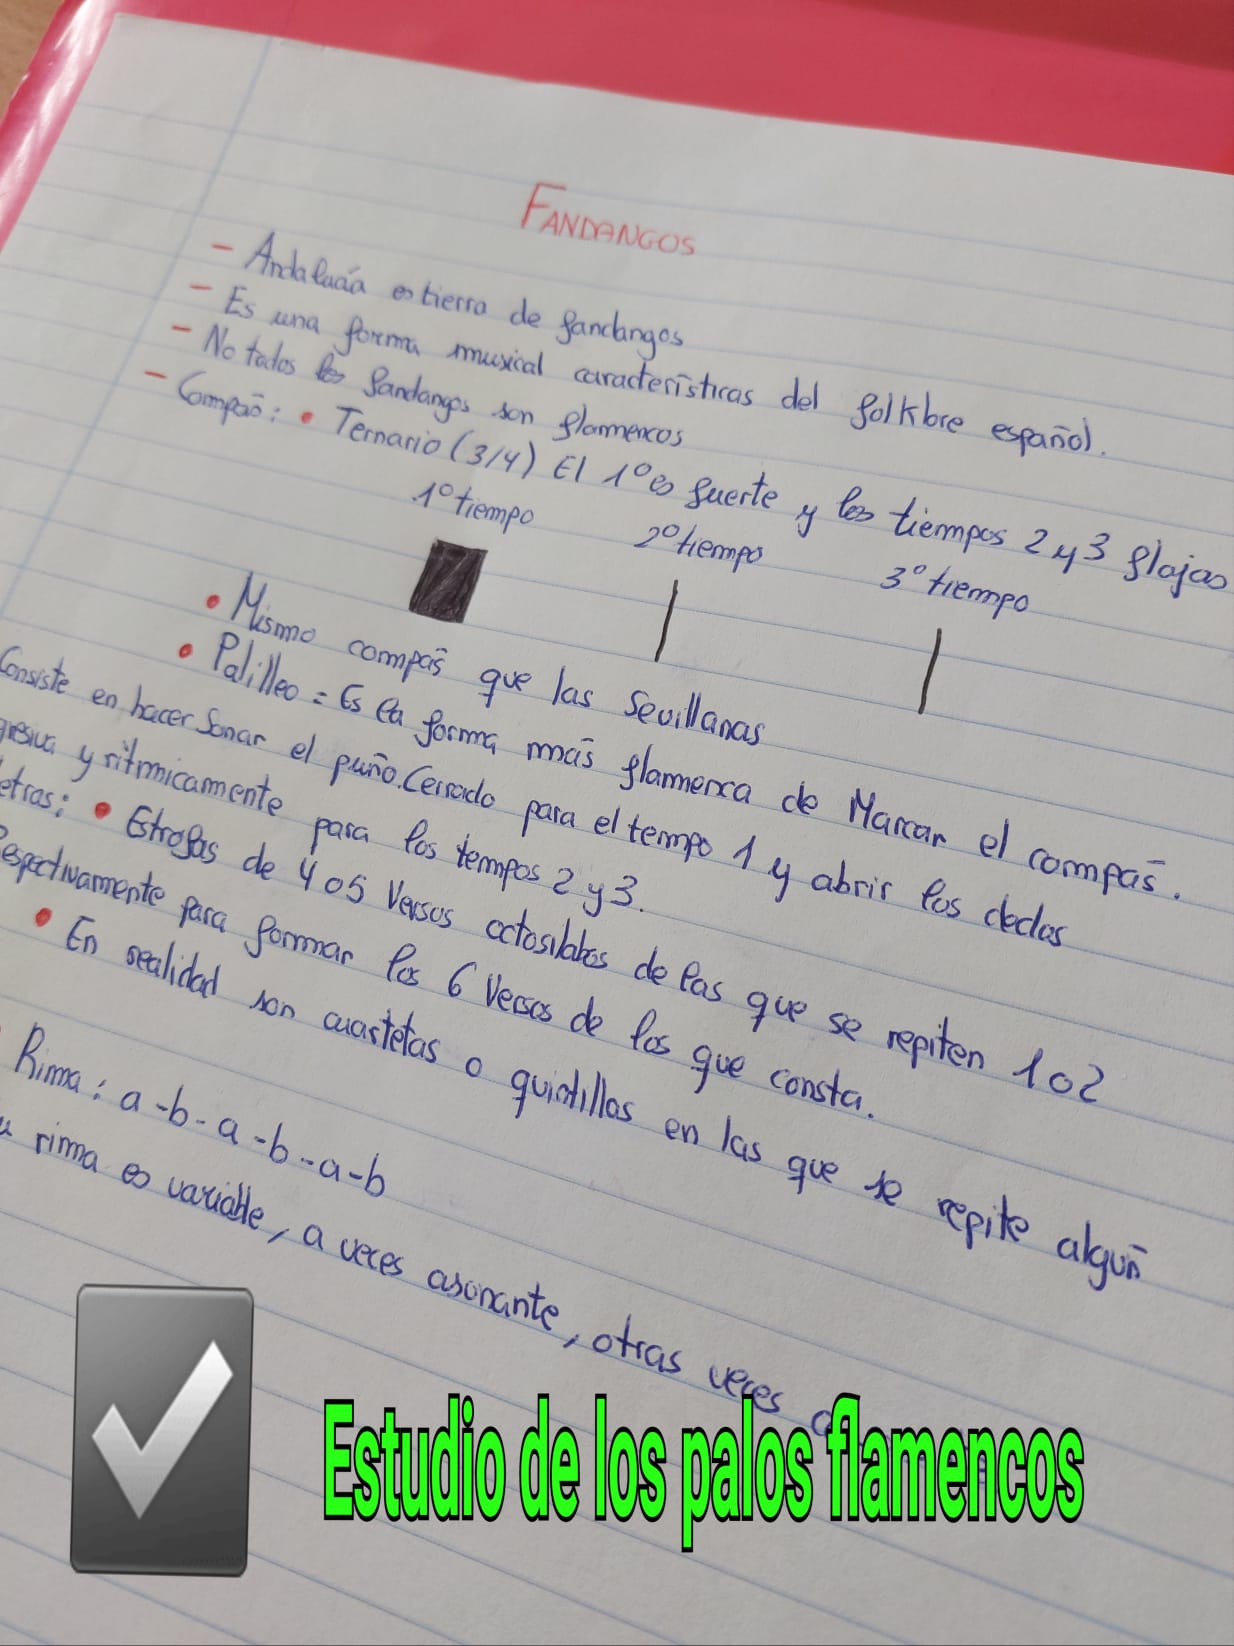 FANDANGOS
- Andalucía es tierra de fandangos
- Es una forma musical características del folklore español.
- No todos los fandangos son flamencos
- Compás: • Ternario (3/4) El 1º es fuerte y los tiempos 2 y 3 flojos
1º tiempo 2º tiempo 3º tiempo
• Mismo compás que las Sevillanas
• Palilleo = Es la forma más flamenca de Marcar el compás.
Consiste en hacer Sonar el puño. Cerrado para el tempo 1 y abrir los dedos
y ritmicamente para los tempos 2 y 3.
etras: • Estrofas de 4 o 5 Versos octosílabos de las que se repiten 1 o 2
Respectivamente para formar los 6 Versos de los que consta.
• En realidad son cuartetas o quintillas en las que se repite algún
Rima: a-b-a-b-a-b
u rima es variable, a veces asonante, otras veces
Estudio de los palos flamencos